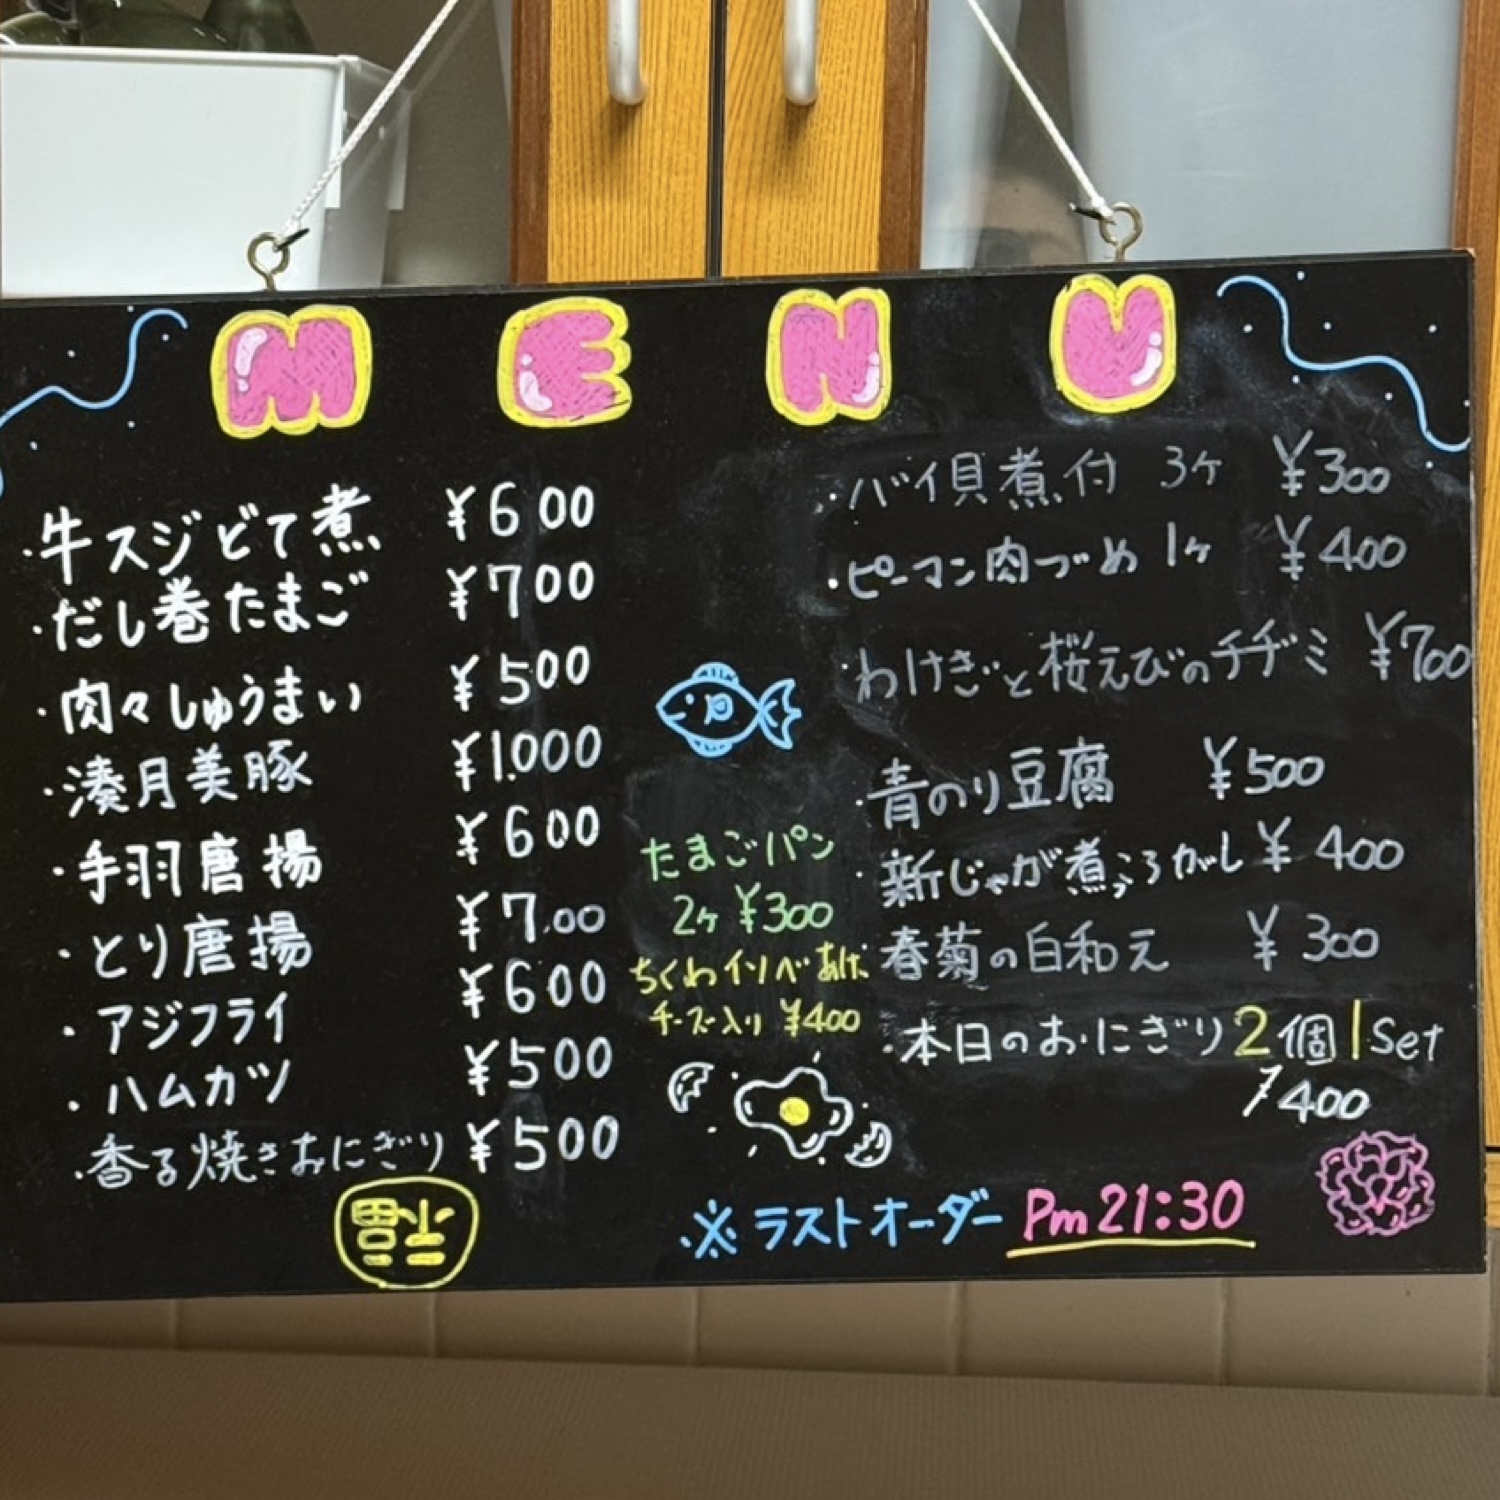 MENU
・牛スジどて煮 ¥600
・だし巻たまご ¥700
・肉々しゅうまい ¥500
・湊月美豚 ¥1.000
・手羽唐揚 ¥600
・とり唐揚 ¥7.00
・アジフライ ¥600
・ハムカツ ¥500
・香る焼きおにぎり ¥500
たまごパン
2ヶ ¥300
ちくわイソベあげ
チーズ入り ¥400
・バイ貝煮付 3ヶ ¥300
・ピーマン肉づめ 1ヶ ¥400
・わけぎと桜えびのチヂミ ¥700
・青のり豆腐 ¥500
・新じゃが煮ころがし ¥400
・春菊の白和え ¥300
・本日のおにぎり2個1Set
400
※ラストオーダー Pm21:30